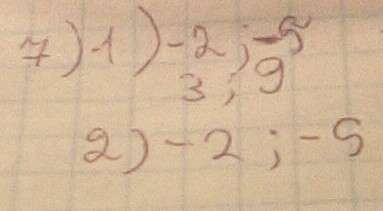 7) 1) -2; -5
3; 9
2) -2; -5